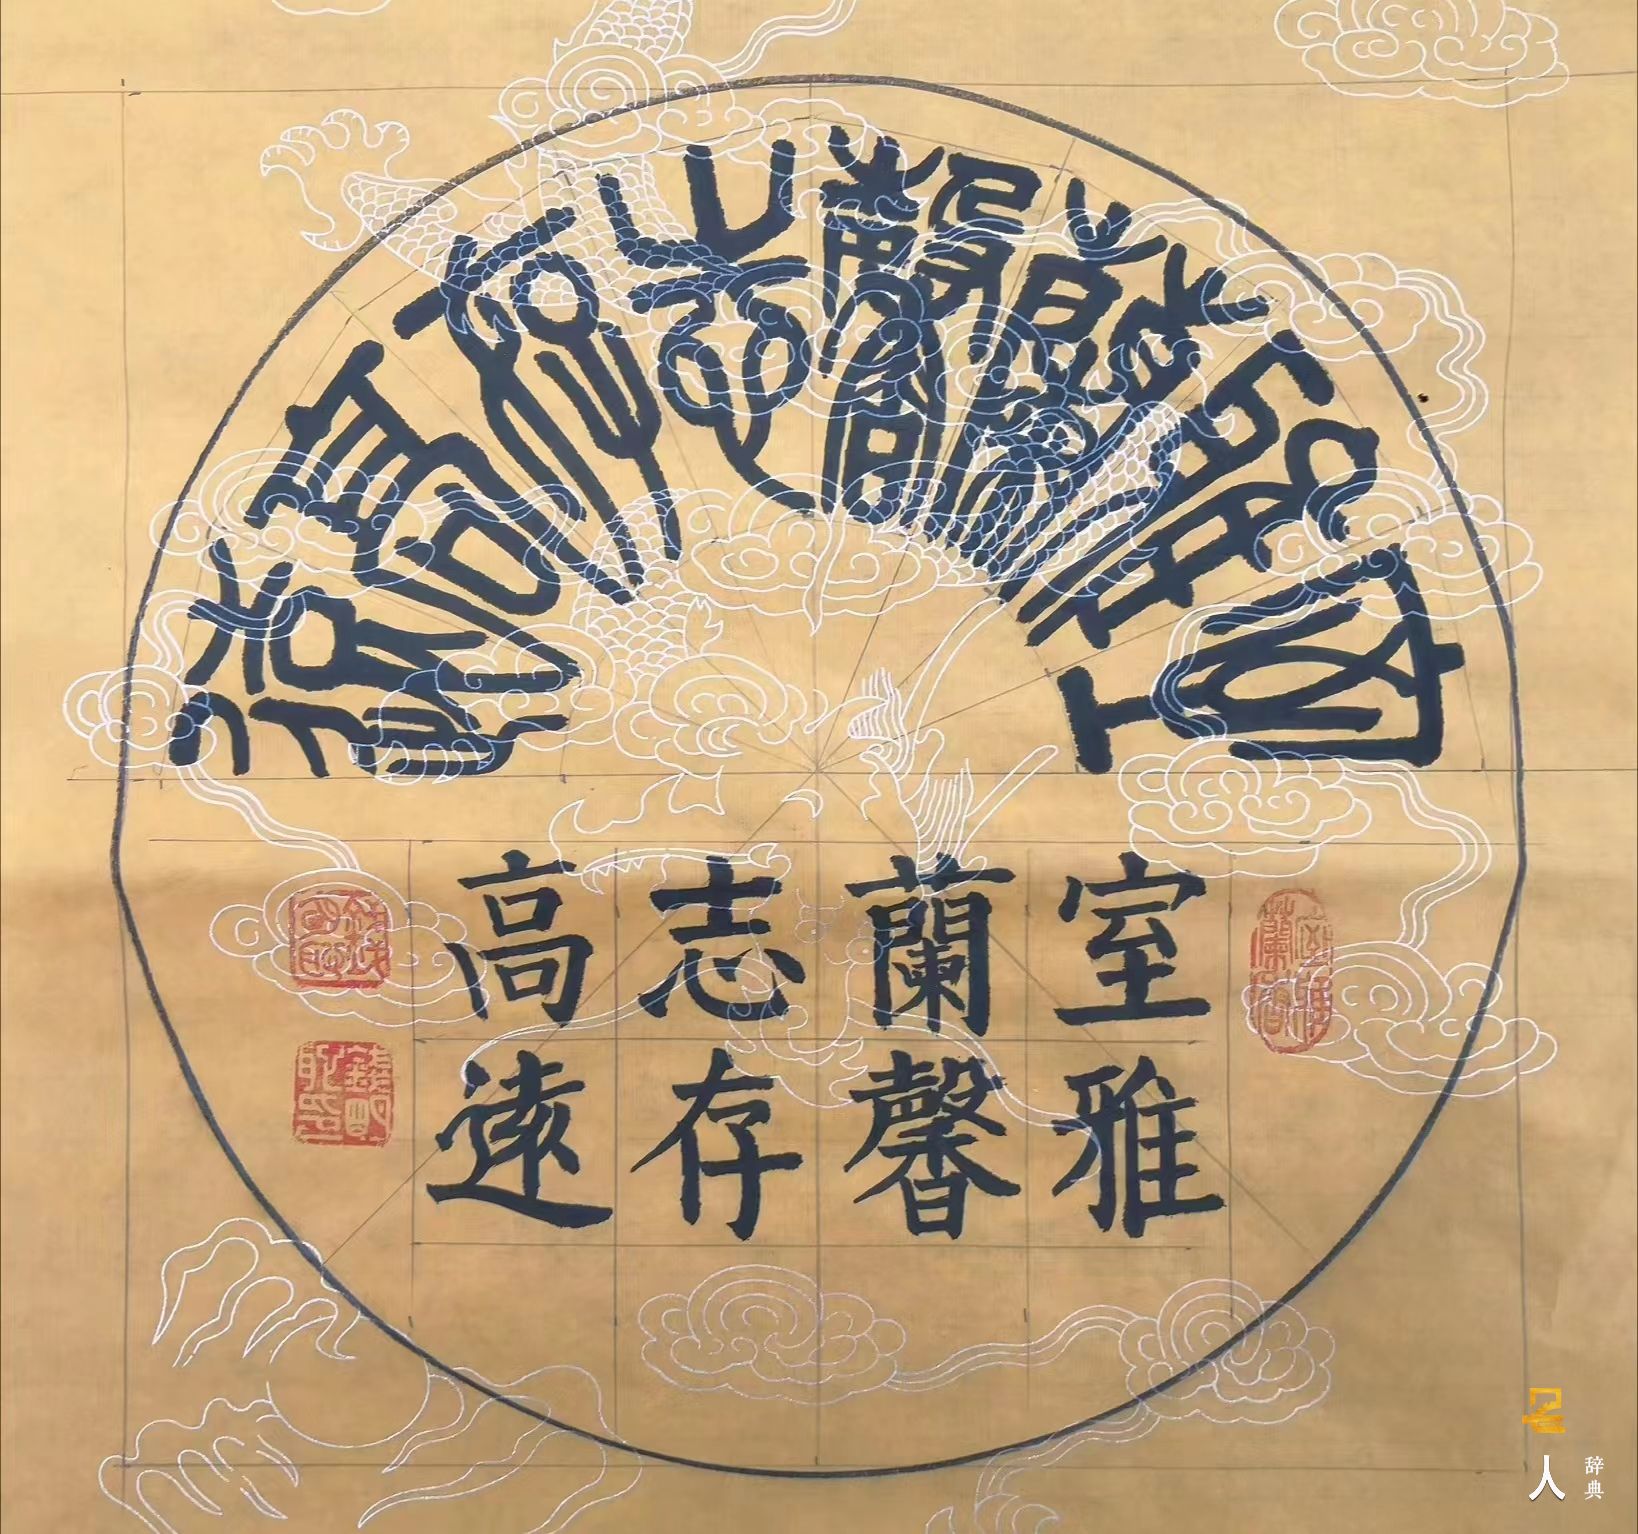 室雅蘭馨志存高遠
室雅
蘭馨
志存
高遠
名人
辞典